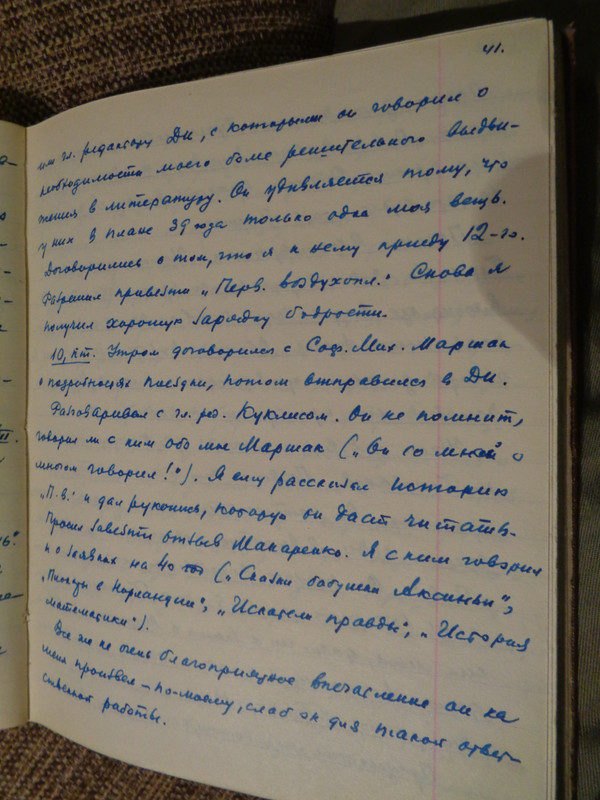 41.
им гл. редактору ДИ, с которым он говорил о
необходимости моего более решительного выдви-
жения в литературу. Он удивляется тому, что
у них в плане 39 года только одна моя вещь.
Договорились с тем, что я к нему приеду 12-го.
Разрешил привезти „Перв. воздухопл." Снова я
получил хорошую зарядку бодрости.
10, пт. Утром договорился с Соф. Мих. Маршак
о подробностях поездки, потом отправился в ДИ.
Разговаривал с гл. ред. Куклисом. Он не помнит,
говорил ли с ним обо мне Маршак („Он со мной о
многом говорил!"). Я ему рассказал историю
„П.В." и дал рукопись, которую он даст читать.
Просил завезти отзыв Макаренко. Я с ним говорил
и о заявках на 40 („Сказки бабушки Аксиньи",
„Пионеры в Норландии", „Искатели правды", „История
математики").
Все же не очень благоприятное впечатление он на
меня произвел – по-моему, слаб он для такой ответ-
ственной работы.